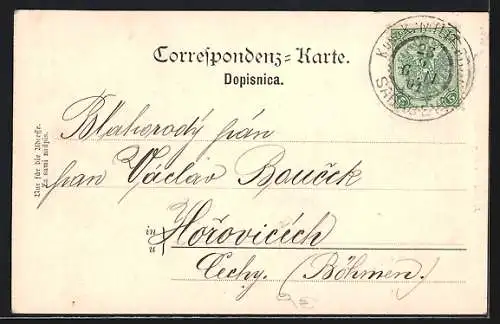 Correspondenz-Karte.
Dopisnica.
Nur für die Adresse.
Za sami nadpis.
Blahorodý pán
pan Václav Bouček
in
u
Hořovicích
Čechy. (Böhmen.)